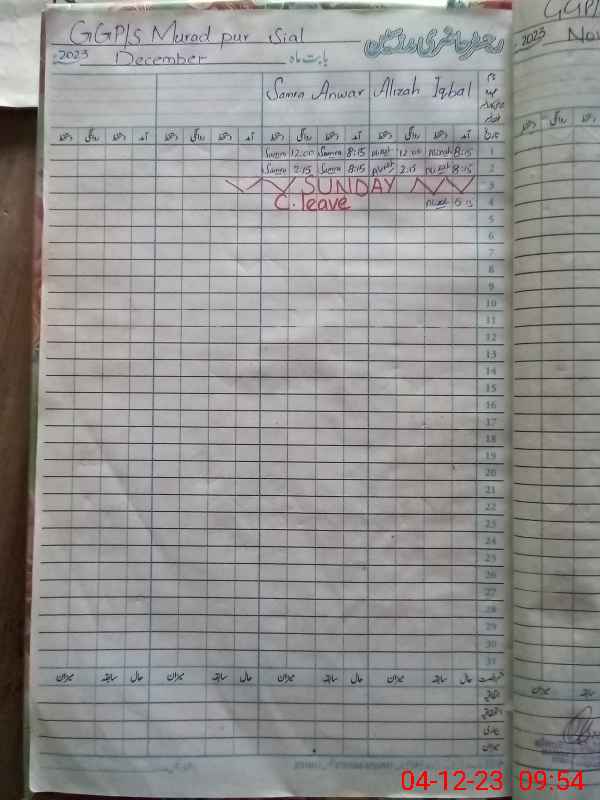 GGP/S Murad pur Sial رجسٹر حاضری مدرسین
2023 December بابت ماہ
Samra Anwar Alizah Iqbal نام
تاریخ آمد دستخط روانگی دستخط آمد دستخط روانگی دستخط آمد دستخط روانگی دستخط آمد دستخط روانگی دستخط
Samra 12:00 Samra 8:15 12:00 8:15 1
Samra 2:15 Samra 8:15 2:15 8:15 2
SUNDAY 3
C. leave 4
5
6
7
8
9
10
11
12
13
14
15
16
17
18
19
20
21
22
23
24
25
26
27
28
29
30
31
حال سابقہ میزان حال سابقہ میزان حال سابقہ میزان حال سابقہ میزان
میزان
GGP/
2023 Nov
میزان سابقہ
04-12-23 09:54